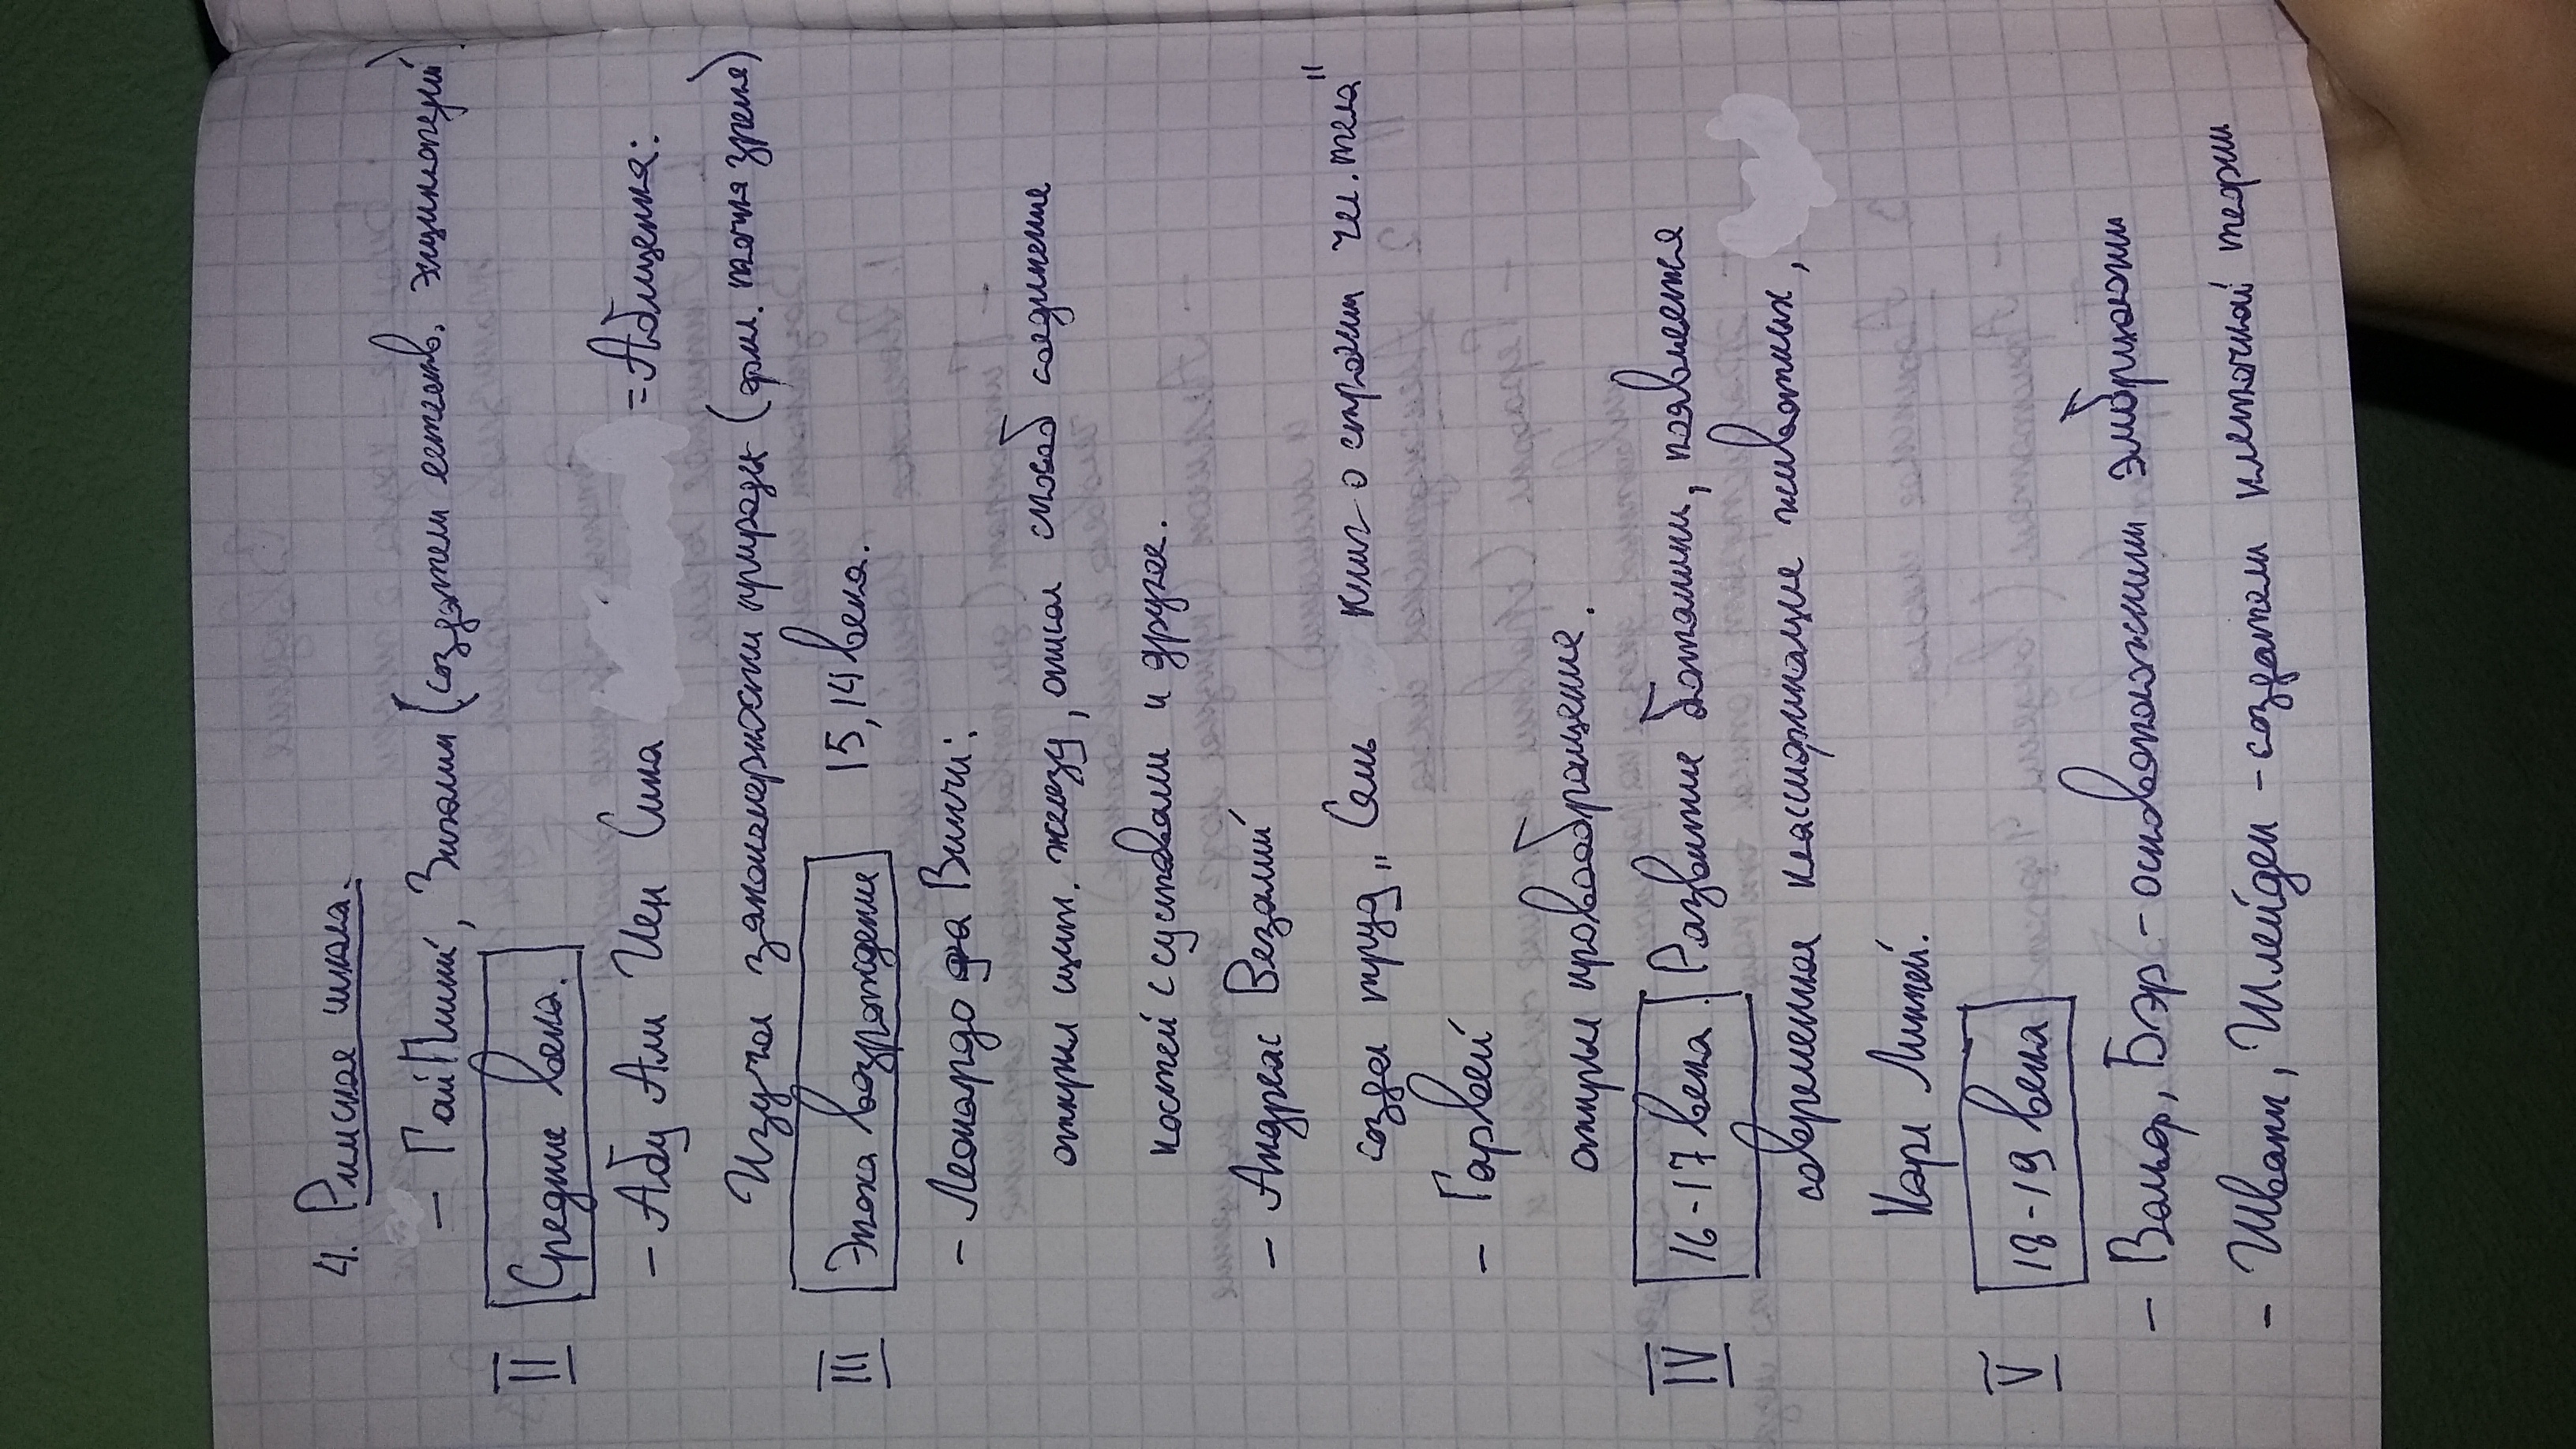 4. Римская школа.
– Гай Плиний, Зиалии (создатели естеств. энциклопедий)
II Средние века.
– Абу Али Ибн Сина = Авиценна:
Изучал закономерности природы (фил. точка зрения)
III Эпоха возрождения 15, 14 века.
– Леонардо да Винчи:
открыл щит. железу, описал способ соединение
костей с суставами и другое.
– Андреас Везалий
создал труд „Семь книг о строении чел. тела"
– Гарвей
открыл кровообращение.
IV 16-17 века. Развитие ботаники, появляется
современная классификацие животных,
Карл Линней.
V 18-19 века
– Вольф, Бэр – основоположники эмбриологии
– Шванн, Шлейден – создатели клеточной теории